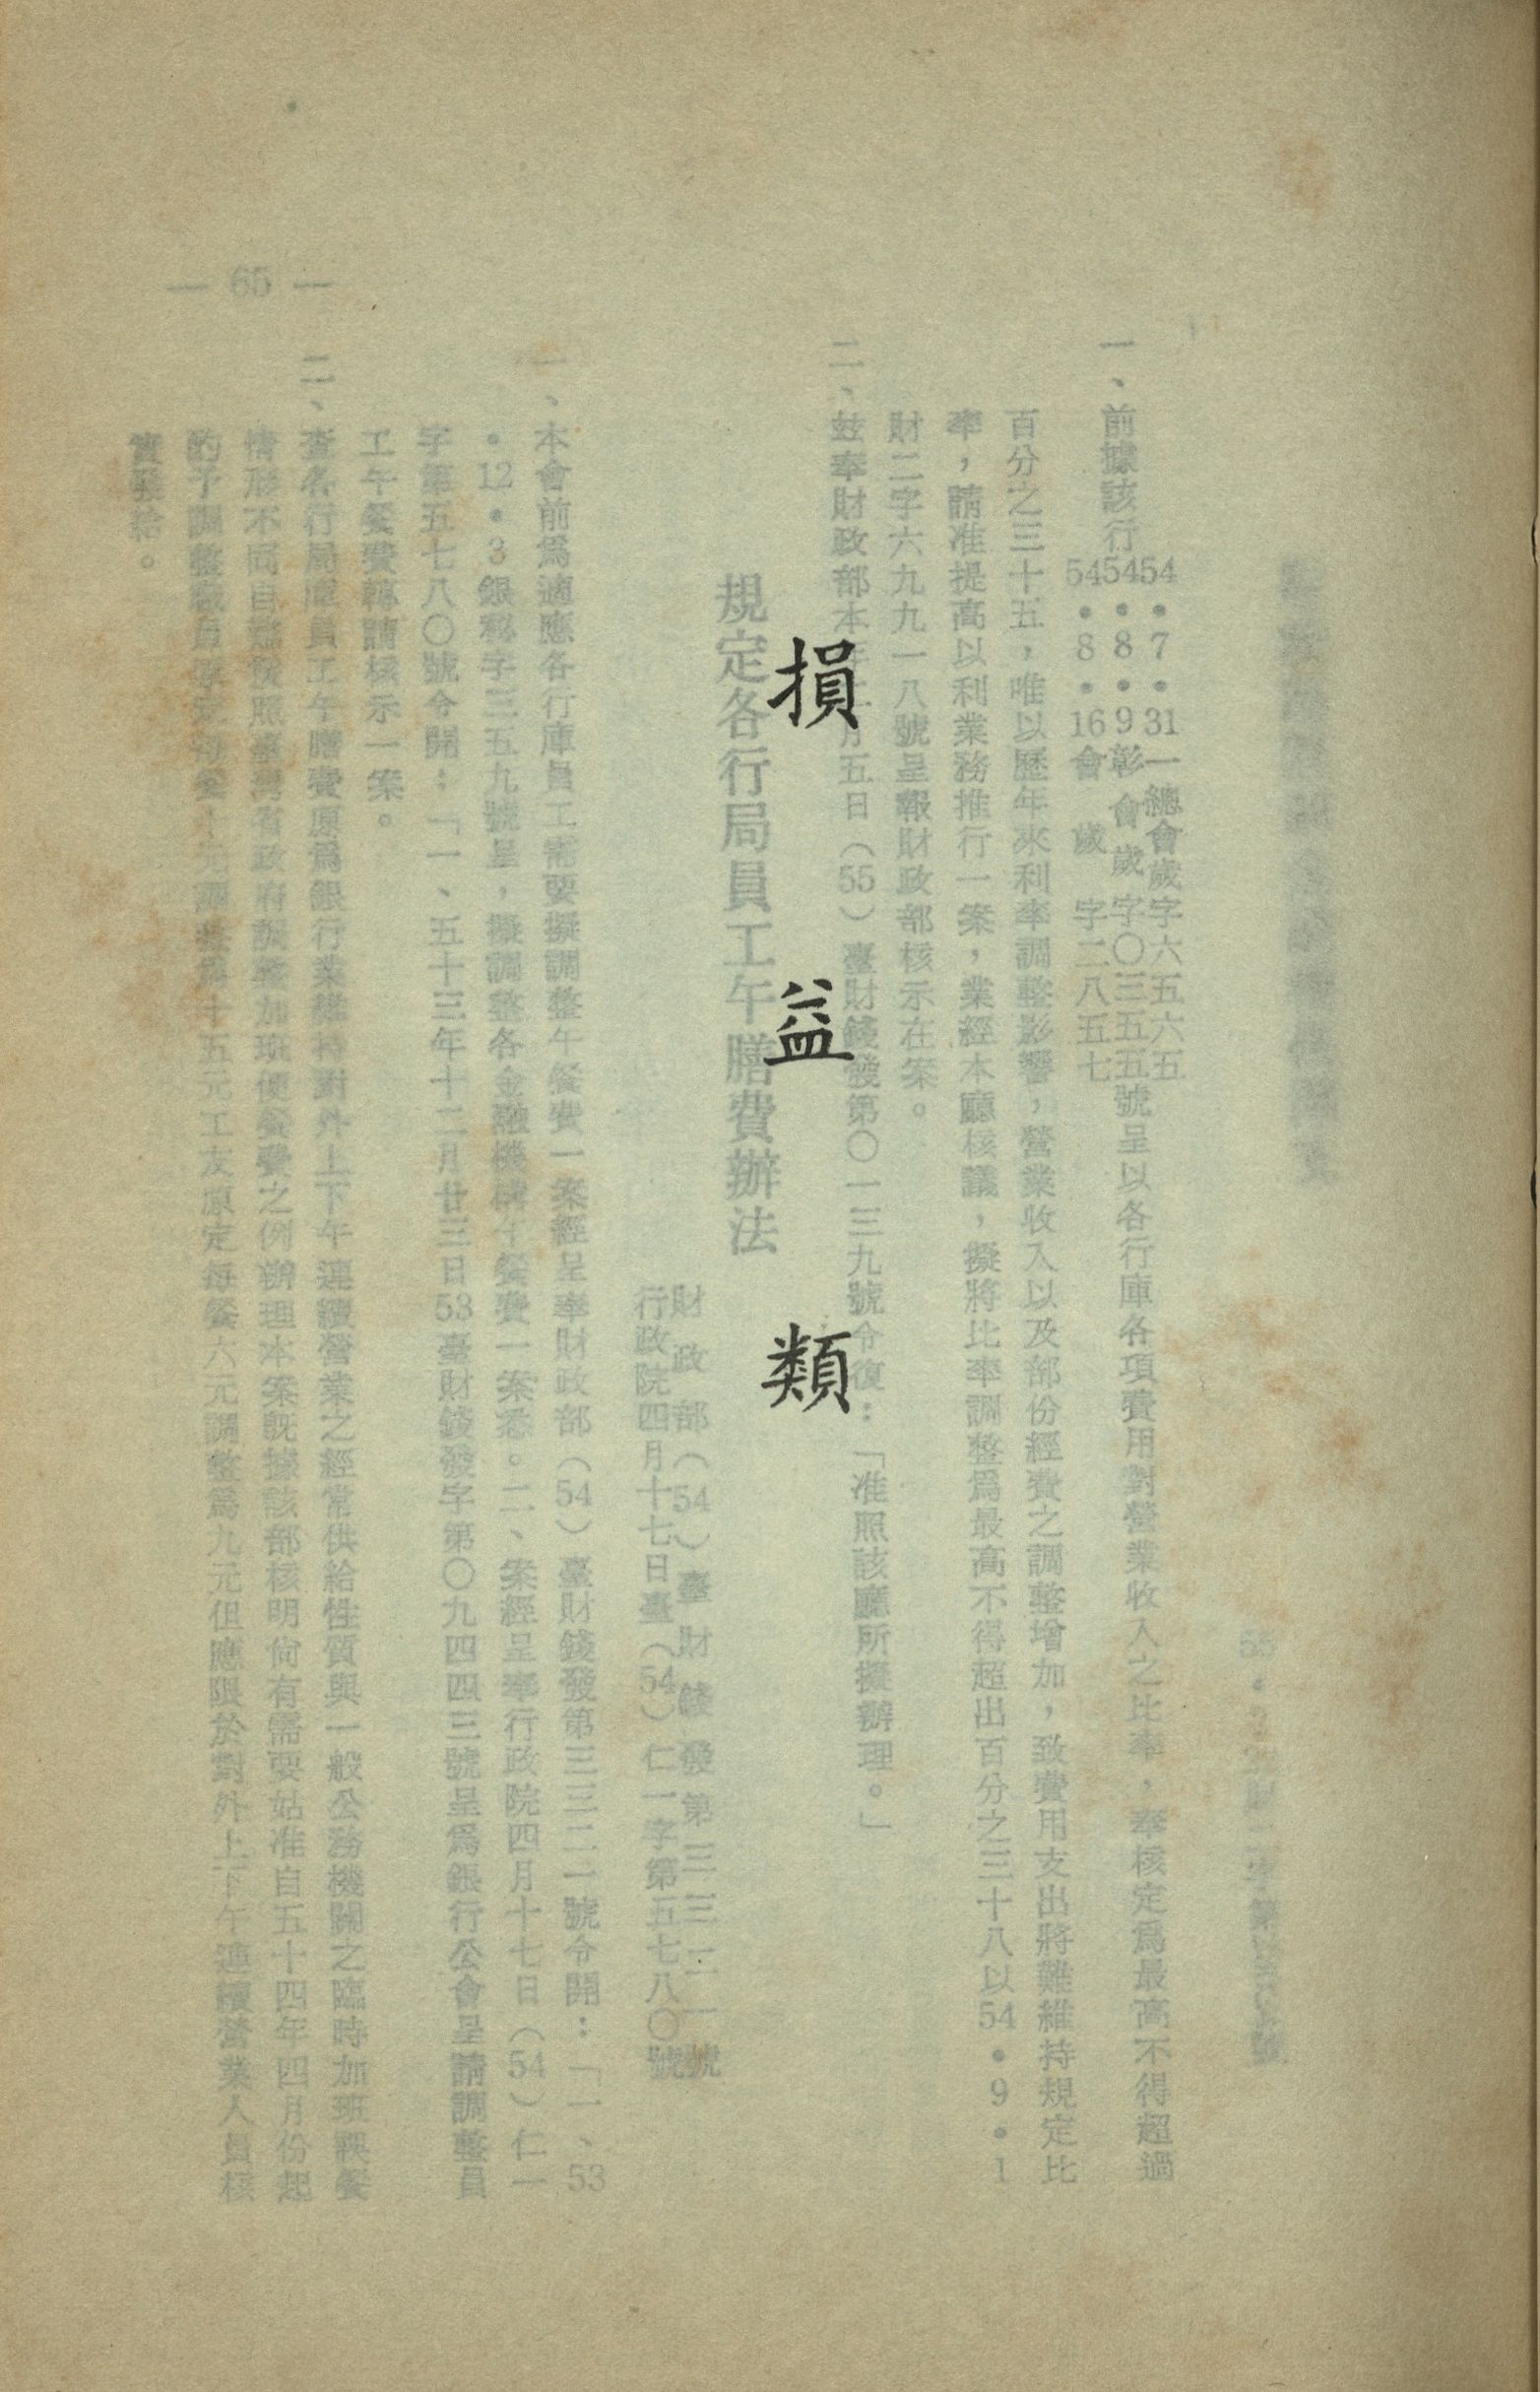 損益類
一、前據該行
54•7•31一總會歲字六五六五
54•8•9彰會歲字〇三五五
54•8•16會歲字二八五七
號呈以各行庫各項費用對營業收入之比率，奉核定爲最高不得超過
百分之三十五，唯以歷年來利率調整影響，營業收入以及部份經費之調整增加，致費用支出將難維持規定比
率，請准提高以利業務推行一案，業經本廳核議，擬將比率調整爲最高不得超出百分之三十八以54•9•1
財二字六九九一八號呈報財政部核示在案。
二、玆奉財政部本年 月五日（55）臺財錢發第〇一三九號令復：「准照該廳所擬辦理。」
規定各行局員工午膳費辦法
財政部（54）臺財錢發第三三二一號
行政院四月十七日臺（54）仁一字第五七八〇號
一、本會前爲適應各行庫員工需要擬調整午餐費一案經呈奉財政部（54）臺財錢發第三三二一號令開：「一、53
•12•3銀秘字三五九號呈，擬調整各金融機構午餐費一案悉。二、案經呈奉行政院四月十七日（54）仁一
字第五七八〇號令開：「一、五十三年十二月廿三日53臺財錢發字第〇九四四三號呈爲銀行公會呈請調整員
工午餐費轉請核示一案。
二、查各行局庫員工午膳費原爲銀行業維持對外上下午連續營業之經常供給性質與一般公務機關之臨時加班誤餐
情形不同自 照臺灣省政府調整加班便餐費之例辦理本案既據該部核明尙有需要姑准自五十四年四月份起
酌予調整職員原定每餐十元調整爲十五元工友原定每餐六元調整爲九元但應限於對外上下午連續營業人員核
實發給。
— 65 —